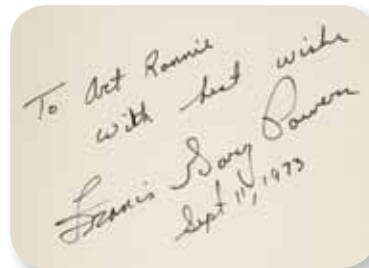 To Art Ronnie
with best wishes
Francis Gary Powers
Sept 11, 1973